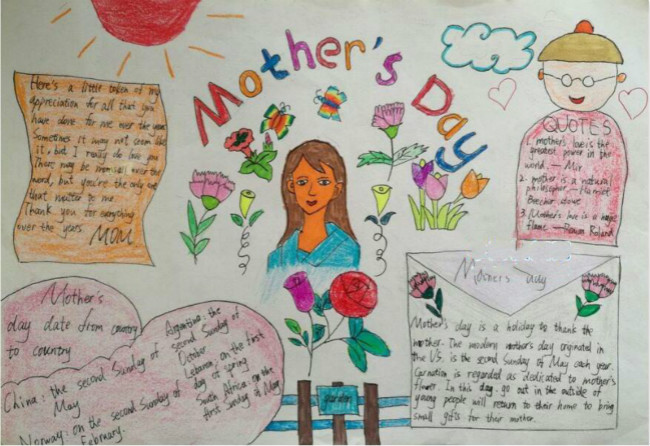 Mother's Day
Here's a little token of my
appreciation for all that you
have done for me over the years
Sometimes it may not seem like
it, but I really do love you
There may be mom'ses over the
word, but you're the only one
that matter to me
Thank you for everything
over the years MOM
QUOTES
1. mother's love is the
greatest power in the
world. — Mir
2. mother is a natural
philosopher — Harriet
Beecher stowe
3. Mother's love is a
flame. — Roman Roland
Mother's
day date from country
to country
China: the second Sunday of
May
Norway: on the second Sunday of
February.
Argentina: the
second Sunday of
October
Lebanon: on the first
day of spring
South Africa: on the
first Sunday of May
garden
Mother's day
Mother's day is a holiday to thank the
mother. The modern mother's day orginated in
the US. is the second Sunday of May each year.
Carnation is regarded as dedicated to mother's
flower. In this day. go out in the outside of
young people will return to their home to bring
small gifts for their mother.